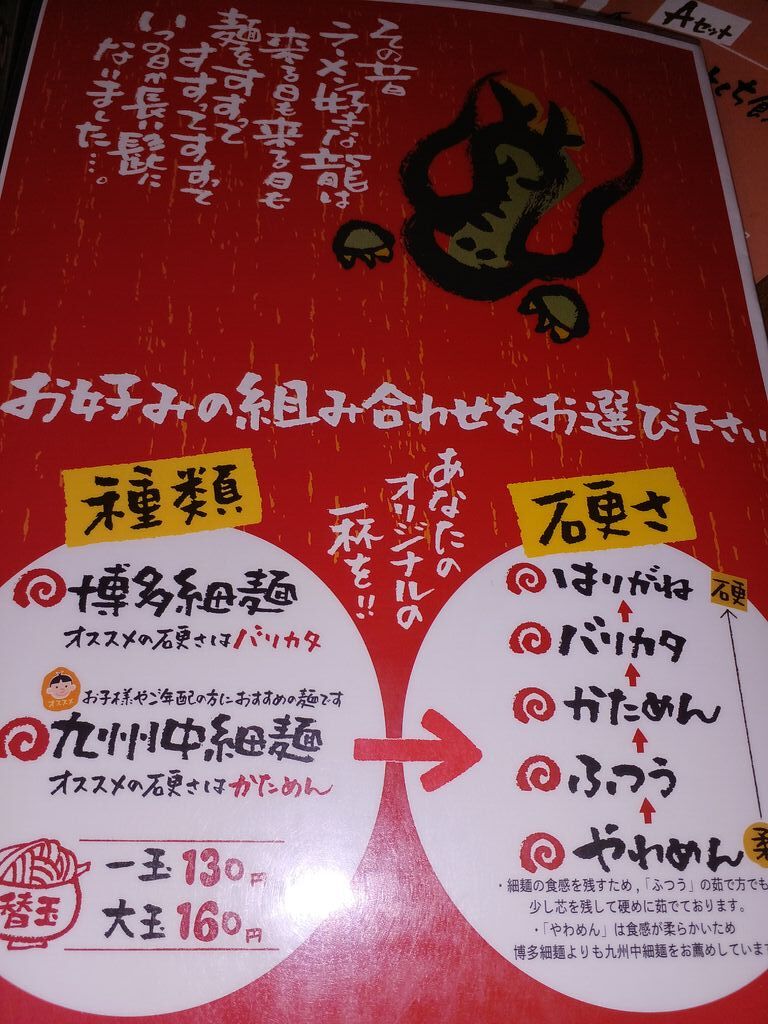 Aセット
その昔
ラーメン好きな龍は
来る日も来る日も
麺をすすって
すすってすすって
いつの日か長い髭に
なりました…。
お好みの組み合わせをお選び下さい
あなたの
オリジナルの
一杯を!!
種類
博多細麺
オススメの硬さはバリカタ
オススメ
お子様やご年配の方におすすめの麺です
九州中細麺
オススメの硬さはかためん
替玉
一玉130円
大玉160円
硬さ
硬
はりがね
バリカタ
かためん
ふつう
やわめん
柔
・細麺の食感を残すため,「ふつう」の茹で方でも
少し芯を残して硬めに茹でております。
・「やわめん」は食感が柔らかいため
博多細麺よりも九州中細麺をお薦めしています